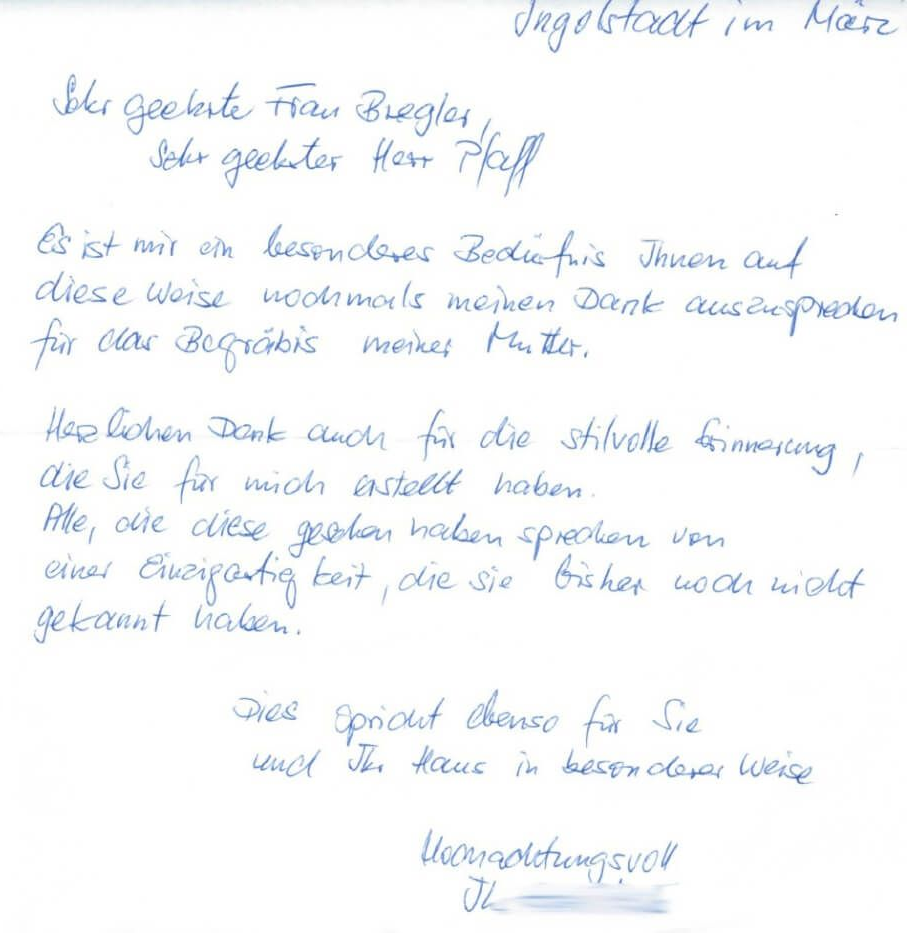 Ingolstadt im März
Sehr geehrte Frau Bregler,
Sehr geehrter Herr Pfaff
Es ist mir ein besonderes Bedürfnis Ihnen auf
diese Weise nochmals meinen Dank auszusprechen
für das Begräbis meiner Mutter.
Herzlichen Dank auch für die stilvolle Erinnerung,
die Sie für mich erstellt haben.
Alle, die diese gesehen haben sprechen von
einer Einzigartigkeit, die sie bisher noch nicht
gekannt haben.
Dies spricht ebenso für Sie
und Ihr Haus in besonderer Weise
Hochachtungsvoll